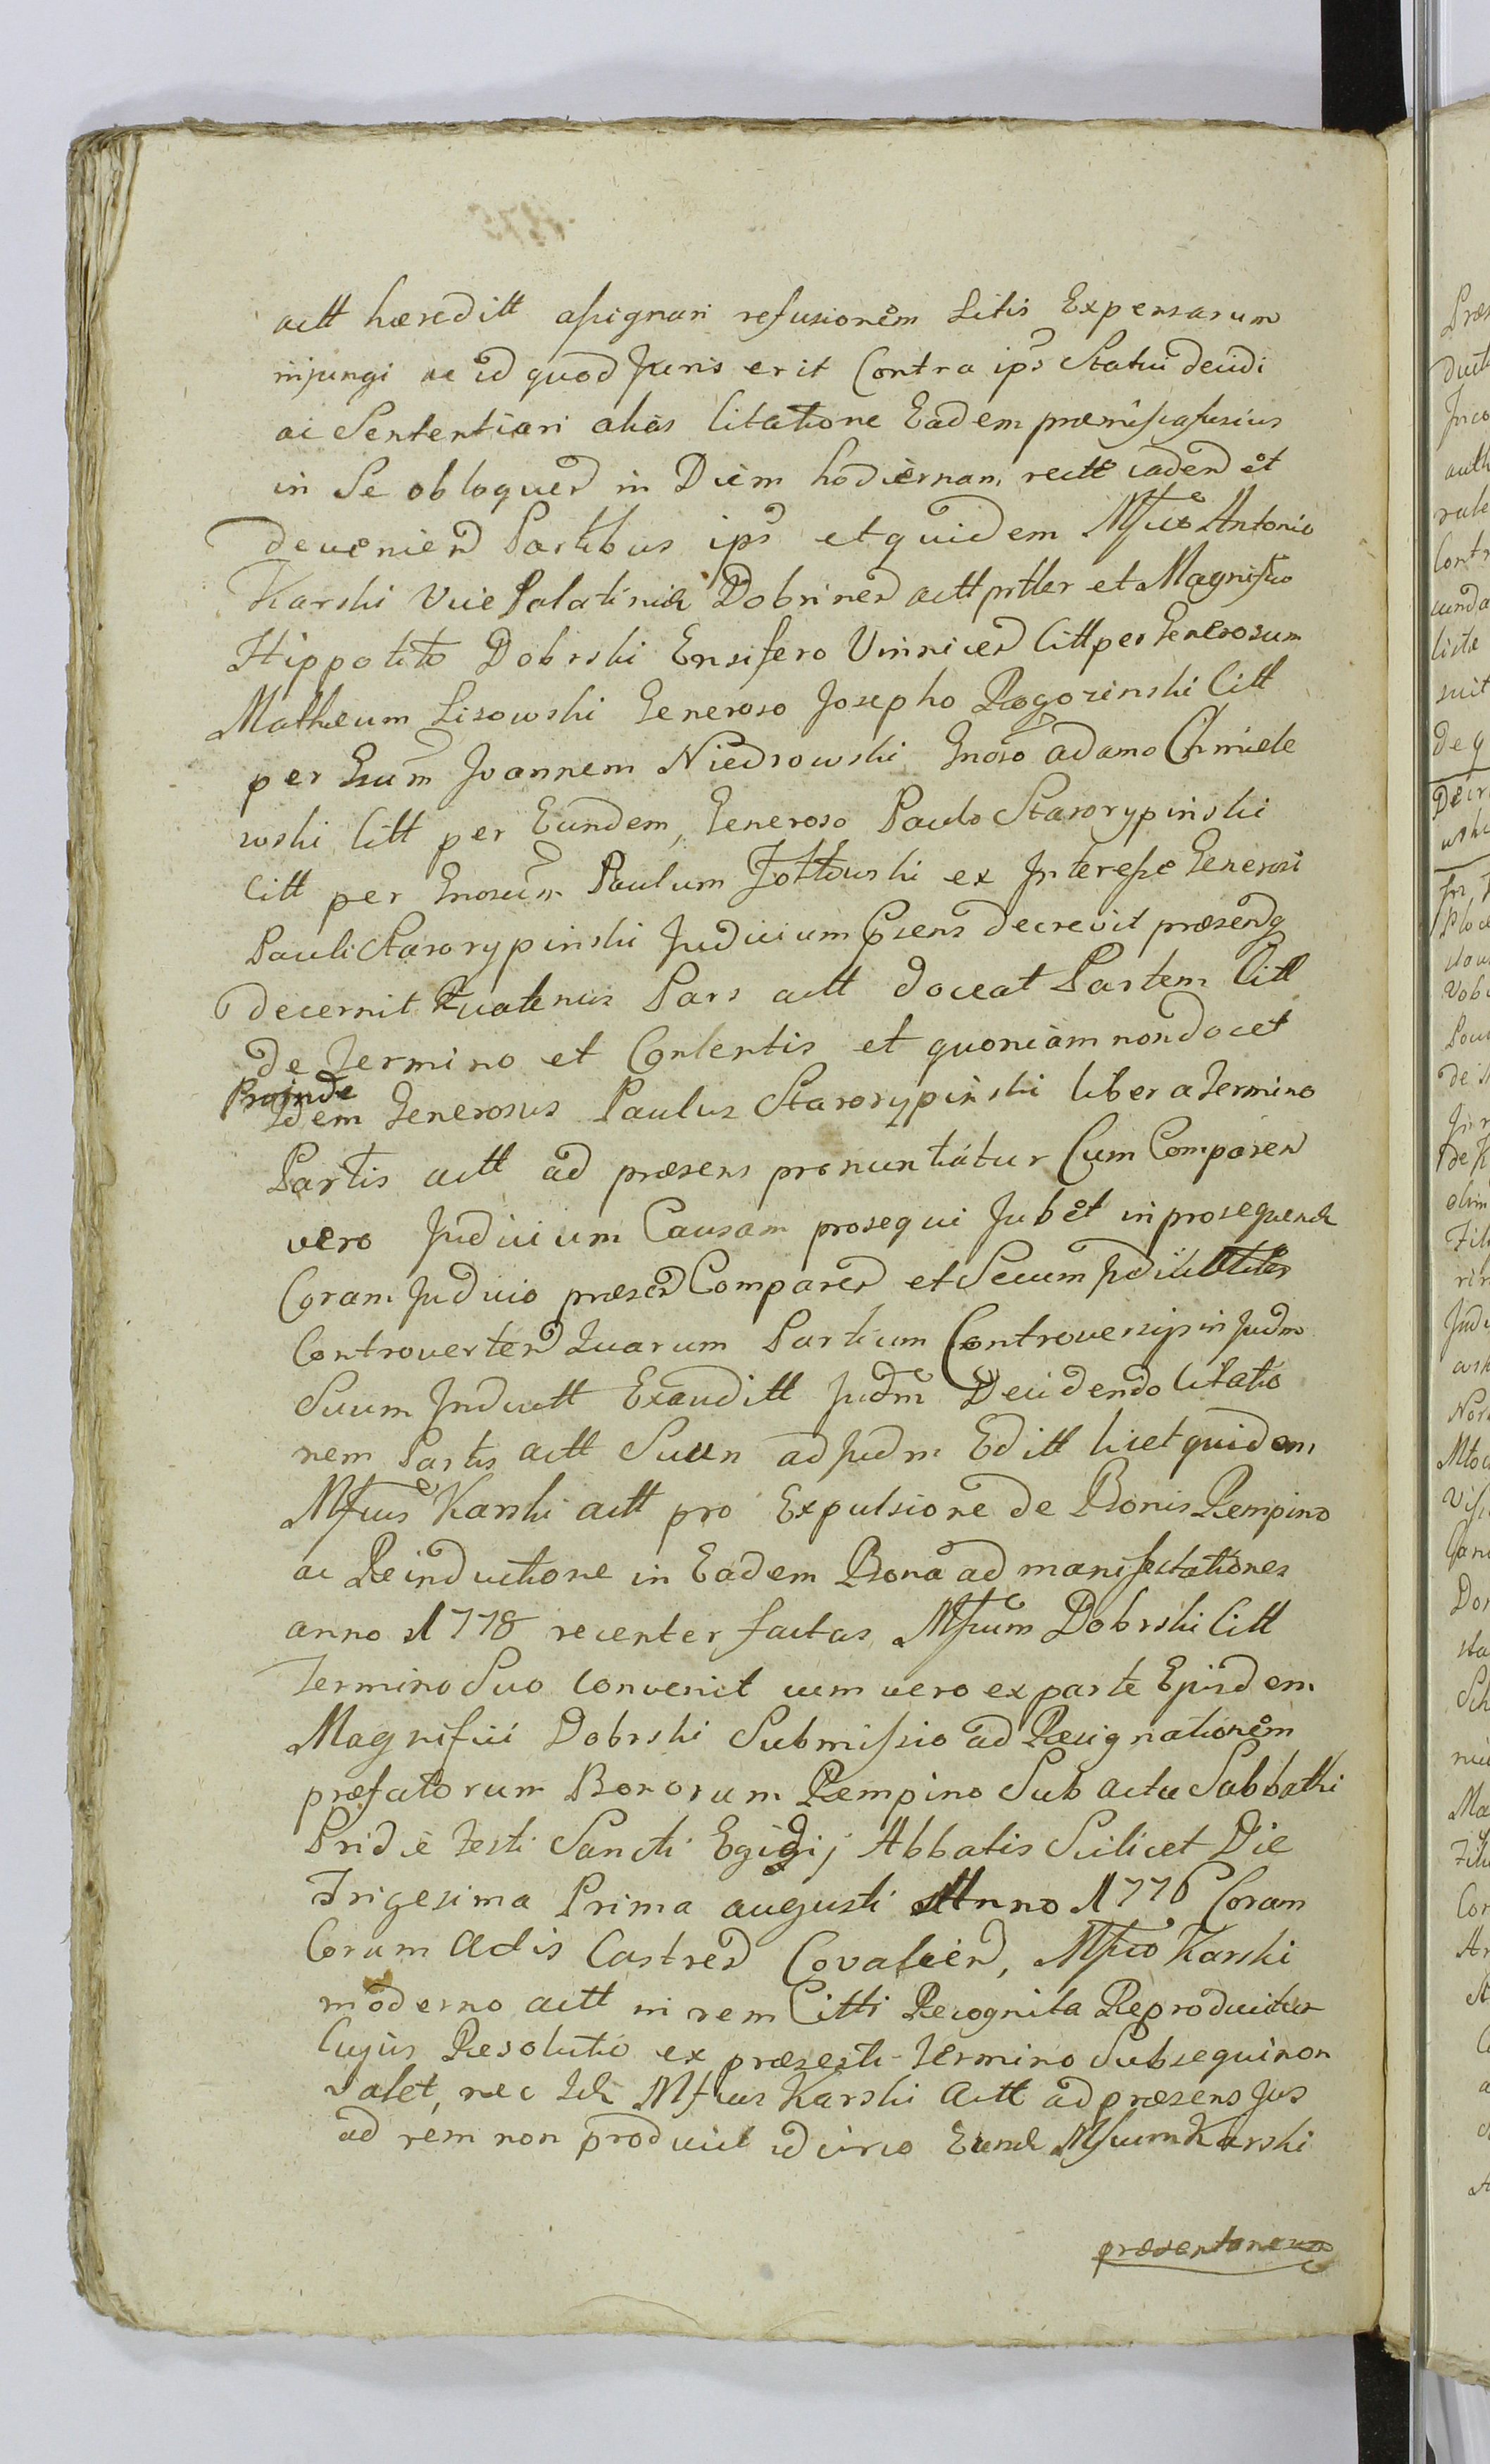 actt hæreditt assignari refusionem Litis Expensarum
injungi ac id quod Juris erit Contra ips Statui decidi
ac Sententiari alias Citatione Eadem præmissa fusius
in Se obloquen in Diem hodiernam rectte caden et
devenien Partibus ips et quidem Mfico Antonio
Karski Vice Palatino Dobrinen actt prtter et Magnifico
Hippolito Dobrski Ensifero Vinnicen Citt per Generosum
Matheum Lisowski Generoso Josepho Rogozinski Citt
per Gsum Joannem Niedrowski Gnoso adamo Chmiele
wski Citt per Eundem, Generoso Paulo Starorypinski
Citt per Gnosum Paulum Zottowski ex Interesse Generosi
Pauli Starorypinski Judicium Gsens decrevit præsensq
decernit Quatenus Pars actt doceat Partem Citt
de Termino et Contentis et quoniam non docet
Proinde
Idem Generosus Paulus Starorypinski liber a Termino
Partis actt ad præsens pronuntiatur Cum Comparen
vero Judicium Causam prosequi Jubet in prosequend
Coram Judicio præsen Comparen et Secum
Controverten Quarum Partium Controversijs in Judm
Suum Inductt Exauditt Judm Decidendo Citatio
nem Partis actt Suam ad Judm Editt licet quidem
Mficus Karski actt pro Expulsione de Bonis Rempino
ac Reinductione in Eadem Bona ad manifestationes
anno 1778 recenter factas Mficum Dobrski Citt
Termino Suo Convenit cum vero ex parte Ejusdem
Magnifici Dobrski Submissio ad Resignationem
præfatorum Bonorum Rempino Sub actu Sabbathi
Pridie Festi Sancti Egidij Abbatis Scilicet Die
Trigesima Prima augusti Anno 1776 Coram
Coram Actis Castren Covalien, Mfico Karski
moderno actt in rem Citti Recognita Reproducitur
Cujus Resolutio ex præsenti Termino Subsequi non
valet, nec Id Mficus Karski actt ad præsens Jus
ad rem non producit idcirco Eund Mficum Karski
præsentaneum